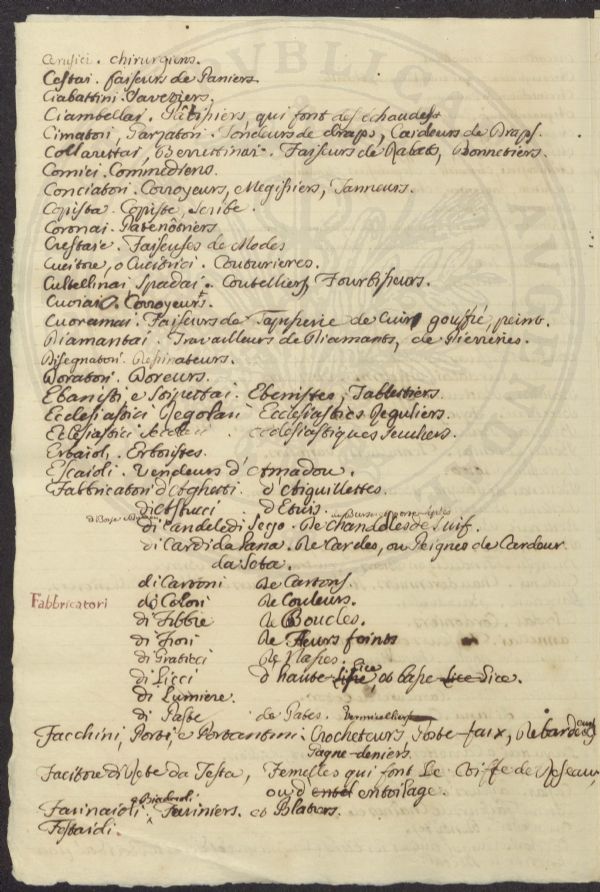 Cerusici. chirurgiens.
Cestai. faiseurs de Paniers
Ciabattini. Savetiers.
Ciambellai. Pâtissiers, qui font des echaudes
Cimatori, Garzatori. Tondeurs de draps, Cardeurs de Draps.
Collarettai, Berrettinai. Faiseurs de Rabats, Bonnetiers.
Comici. Commediens.
Conciatori. Corroyeurs, Megissiers, Tanneurs.
Copista. Copiste, scribe.
Coronai. Patenôtriers
Crestaie. Faiseuses de Modes
Cucitore, o Cucitrici. Couturieres.
Cultellinai Spadai. Coutelliers, Fourbisseurs.
Cuoiai. Corroyeurs.
Cuoramai. Faiseurs de Tapisserie de Cuir gouffré, peint.
Diamantai. Travailleurs de Diamants, de Pierreries.
Disegnatori. Dessinateurs.
Doratori. Doreurs.
Ebanisti, e Stipettai. Ebenistes, Tablettiers.
Ecclesiastici Regolari Ecclesiastics Reguliers.
Ecclesiastici Secolari. ecclesiastiques Seculiers.
Erbaioli. Erboristes.
Escaioli. Vendeurs d'Amadou.
Fabbricatori d'Aghetti. d'Aiguillettes.
di Astucci d'Etuis.
di Borse
di Candele di Sego. de chandelles de Suif.
di Cardi da Lana. de Cardes, ou Peignes de Cardeur
da Seta.
di Cartoni de Cartons.
Fabbricatori di Colori de Couleurs.
di Fibbie de Boucles.
di Fiori de Fleurs feintes
di Graticci de Nasses.
di Licci d'haute Lice, et basse Lice.
di Lumiere.
di Paste de Pates. Vermicelliers
Facchini, Porti, e Portantini. Crochetteurs Porte-faix,
Gagne-deniers.
Facitore di Rete da Testa, Femelles qui font Le Coiffe de Reseau,
ou d'entoilage.
Farinaioli e Biadaioli. Fariniers. et Blatiers.
Festaioli.